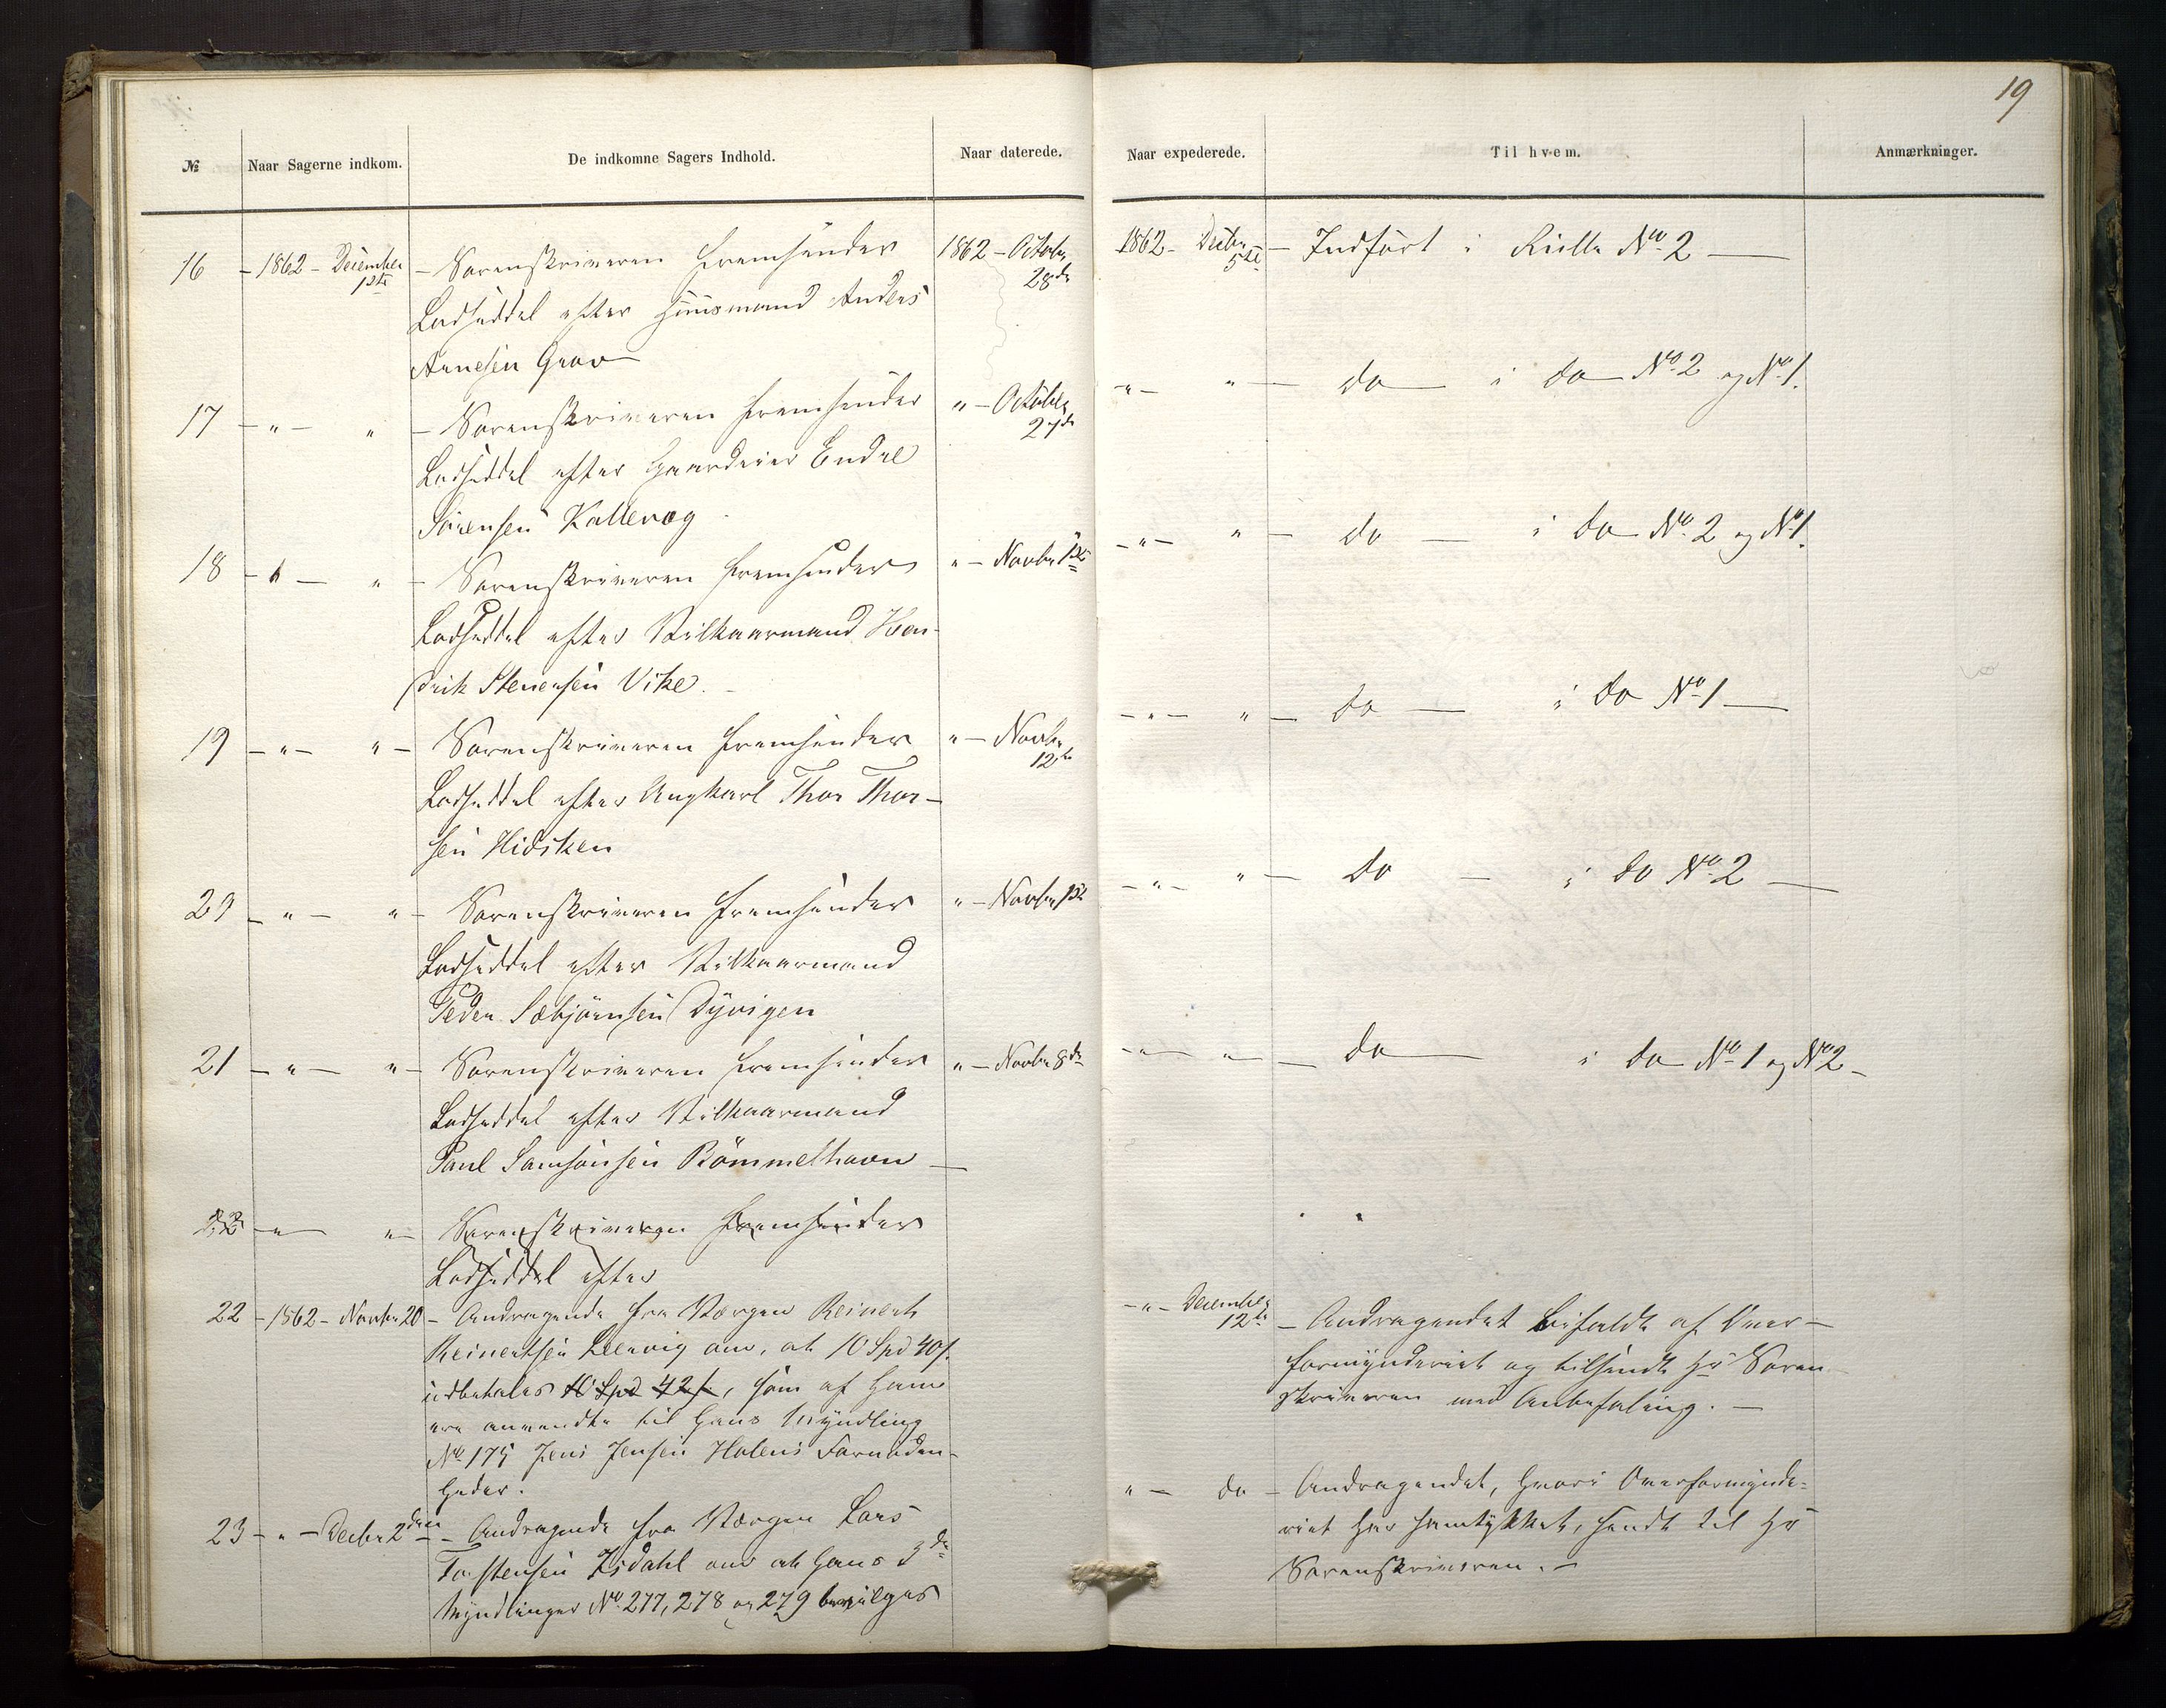 19
№ Naar Sagerne indkom. De indkomne Sagers Indhold. Naar daterede. Naar expederede. Til hvem. Anmærkninger.
16 – 1862 – December 1ste – Sorenskriveren fremsender 1862 – October 28de
Lodseddel efter Huusmand Anders
Arnesen Grav –
17 – " – " – Sorenskriveren fremsender " – October 27de
Lodseddel efter Gaardeier Endre
Sörensen Kallevag
18 – " – " – Sorenskriveren fremsender " – Novbr 1ste
Lodseddel efter Vilkaarmand Hen-
drik Stenersen Vike. –
19 – " – " – Sorenskriveren fremsender " – Novbr 12te
Lodseddel efter Ungkarl Thor Thor-
sen Hidsken
20 – " – " – Sorenskriveren fremsender " – Novbr 1ste
Lodseddel efter Vilkaarmand
Peder Sæbjörnsen Dyvigen
21 – " – " – Sorenskriveren fremsender " – Novbr 8de
Lodseddel efter Vilkaarmand
Paul Samsonsen Römmelhavn –
22 – " – " – Sorenskriveren fremsender
Lodseddel efter
22 – 1862 – Novbr 20 – Andragende fra Værgen Reinert
Reinertsen Leervig om, at 10 Spd 40 s.
udbetales 10 Spd 42 s, som af ham
ere anvendte til hans Myndling
No 175 Jens Jensen Holens Fornöden-
heder.
23 – " – Decbr 2den – Andragende fra Værgen Lars
Torstensen Isdahl om at hans 3de
Myndlinger No 277, 278 og 279 bevilges
1862 – Decbr 5te – Indfört i Rulle No 2 –
– " – " – do – i do No 2 og No 1.
– " – " – do – i do No 2 og No 1.
– " – " – do – i do No 1 –
– " – " – do – i do No 2 –
– " – " – do – i do No 1 og No 2 –
– " – December 12te – Andragendet bifaldt af Over-
formynderiet og tilsendt Hr Soren
skriveren med Anbefaling. –
" – do – Andragendet, hvori Overformynde-
riet har samtykket, sendt til Hr
Sorenskriveren. –